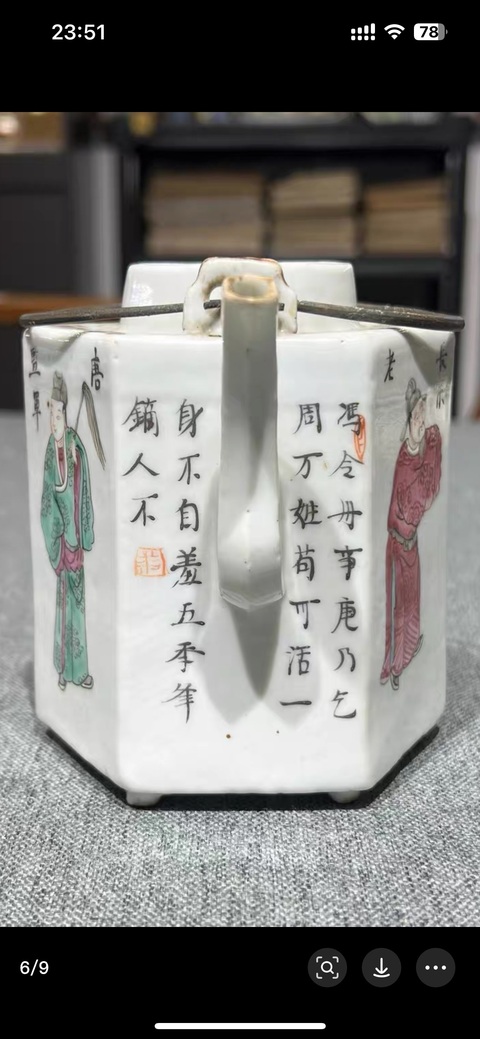 23:51
78
老
唐
馮令毋事乃乞
周万姓苟可活一
身不自羞五季年
鏑人不
6/9